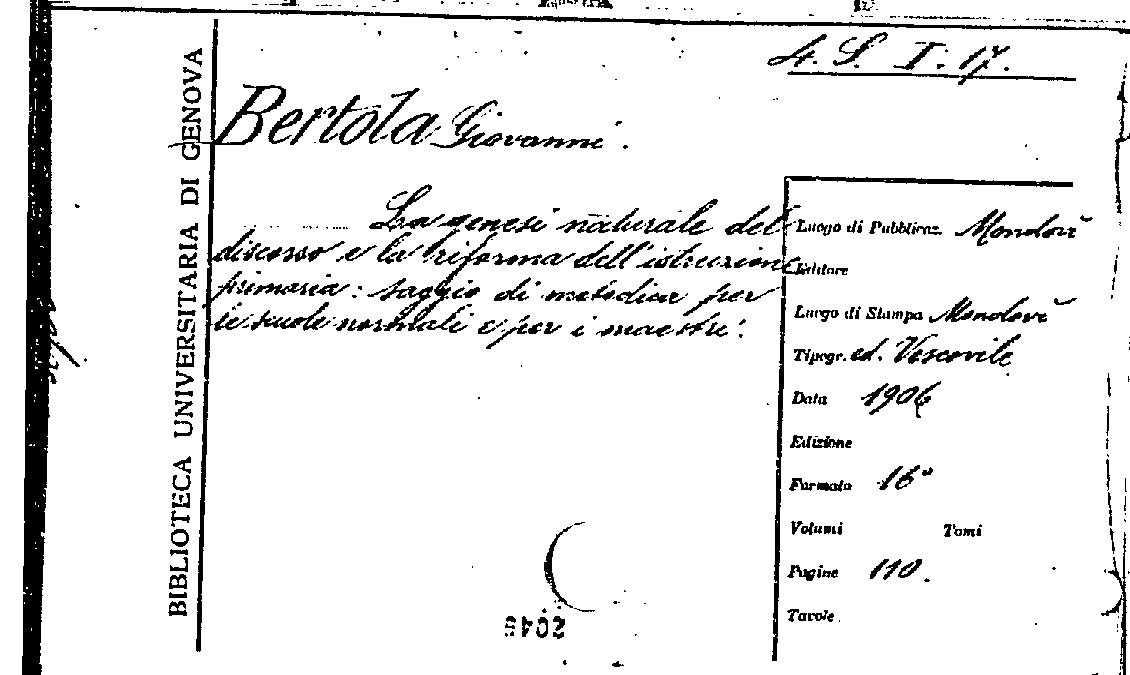 4. S. I. 17.
BIBLIOTECA UNIVERSITARIA DI GENOVA
Bertola Giovanni.
La genesi naturale del
discorso e la riforma dell'istruzione
primaria: saggio di metodica per
le scuole normali e per i maestri.
Luogo di Pubblicaz. Mondovì
Editore
Luogo di Stampa Mondovì
Tipogr. ed. Vescovile
Data 1906
Edizione
Formato 16°
Volumi Tomi
Pagine 110.
Tavole